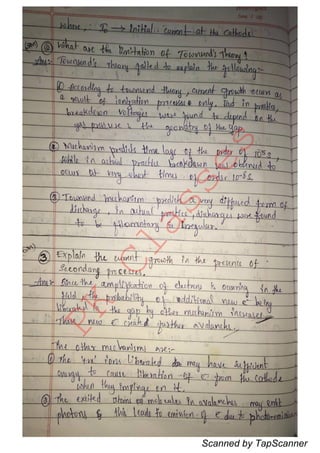 where, : I₀ → Initial current at the cathode.
② What are the limitation of Townsend's Theory?
Ans:- Townsend's theory failed to explain the following:-
① According to townsend theory, current growth occurs as
a result of ionization processes only. But in practice,
breakdown voltages were found to depend on the
gas pressure & the geometry of the gap.
② Mechanism predicts time lags of the order of 10⁻⁵ s,
while in actual practice breakdown was observed to
occur at very short times of order 10⁻⁸ s.
③ Townsend mechanism predicts a very diffused form of
discharge, in actual practice, discharges were found
to be filamentary & irregular.
③ Explain the current growth in the presence of
Secondary processes.
Ans:- Since the amplification of electrons is occuring in the
field, the probability of additional new e⁻ being
liberated in the gap by other mechanism increases
These new e⁻ create further avalanche.
The other mechanisms are:-
① The '+ve' ions liberated may have sufficient
energy to cause liberation of e⁻ from the cathode
when they impinge on it.
② The excited atoms or molecules in avalanches may emit
photons & this leads to emission of e⁻ due to photoemission
Classes
Scanned by TapScanner